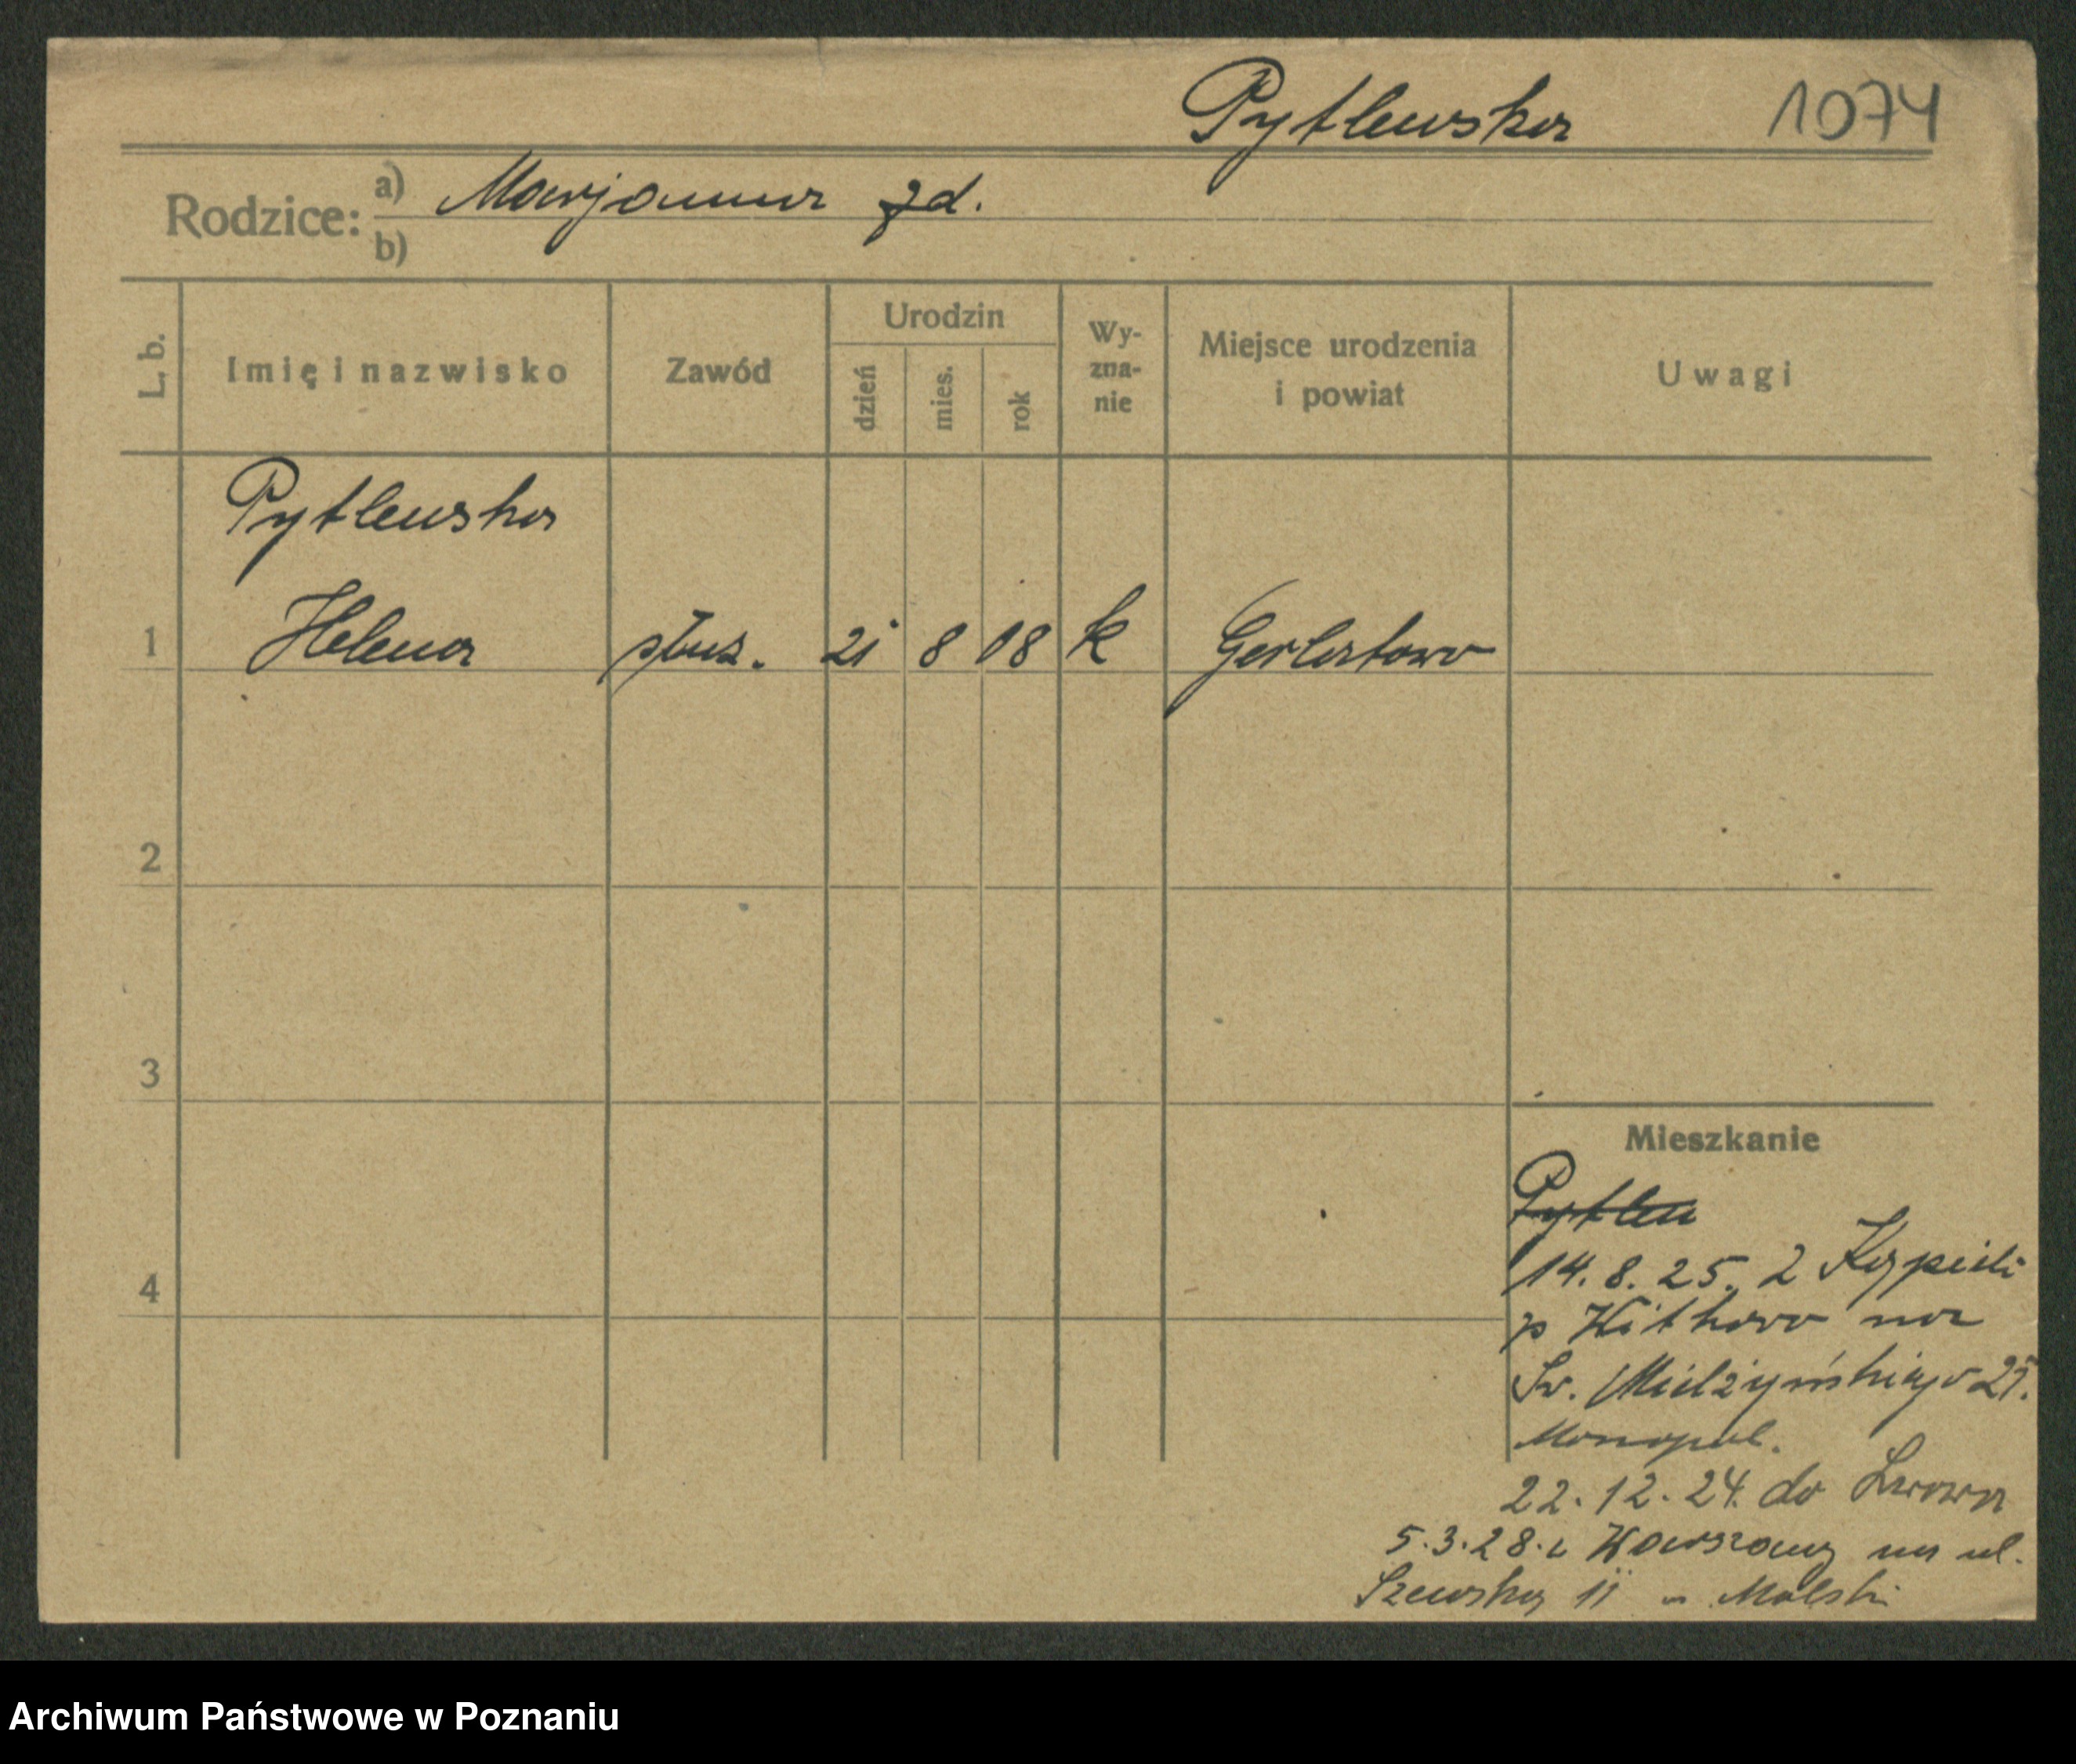 Pytlewska 1074
Rodzice: a) Marjanna zd.
b)
L. b. Imię i nazwisko Zawód Urodzin dzień mies. rok Wy-zna-nie Miejsce urodzenia i powiat Uwagi
Pytlewska
1 Helena służ. 21 8 08 k
2
3
Mieszkanie
Pytlew
4
14. 8. 25. z
p Witkowo na
Św. Mielżyńskiego 27.
Monopol.
22. 12. 24. do Lwowa
5.3.28. z Warszawy na ul.
Szewską 11 Molski
Archiwum Państwowe w Poznaniu